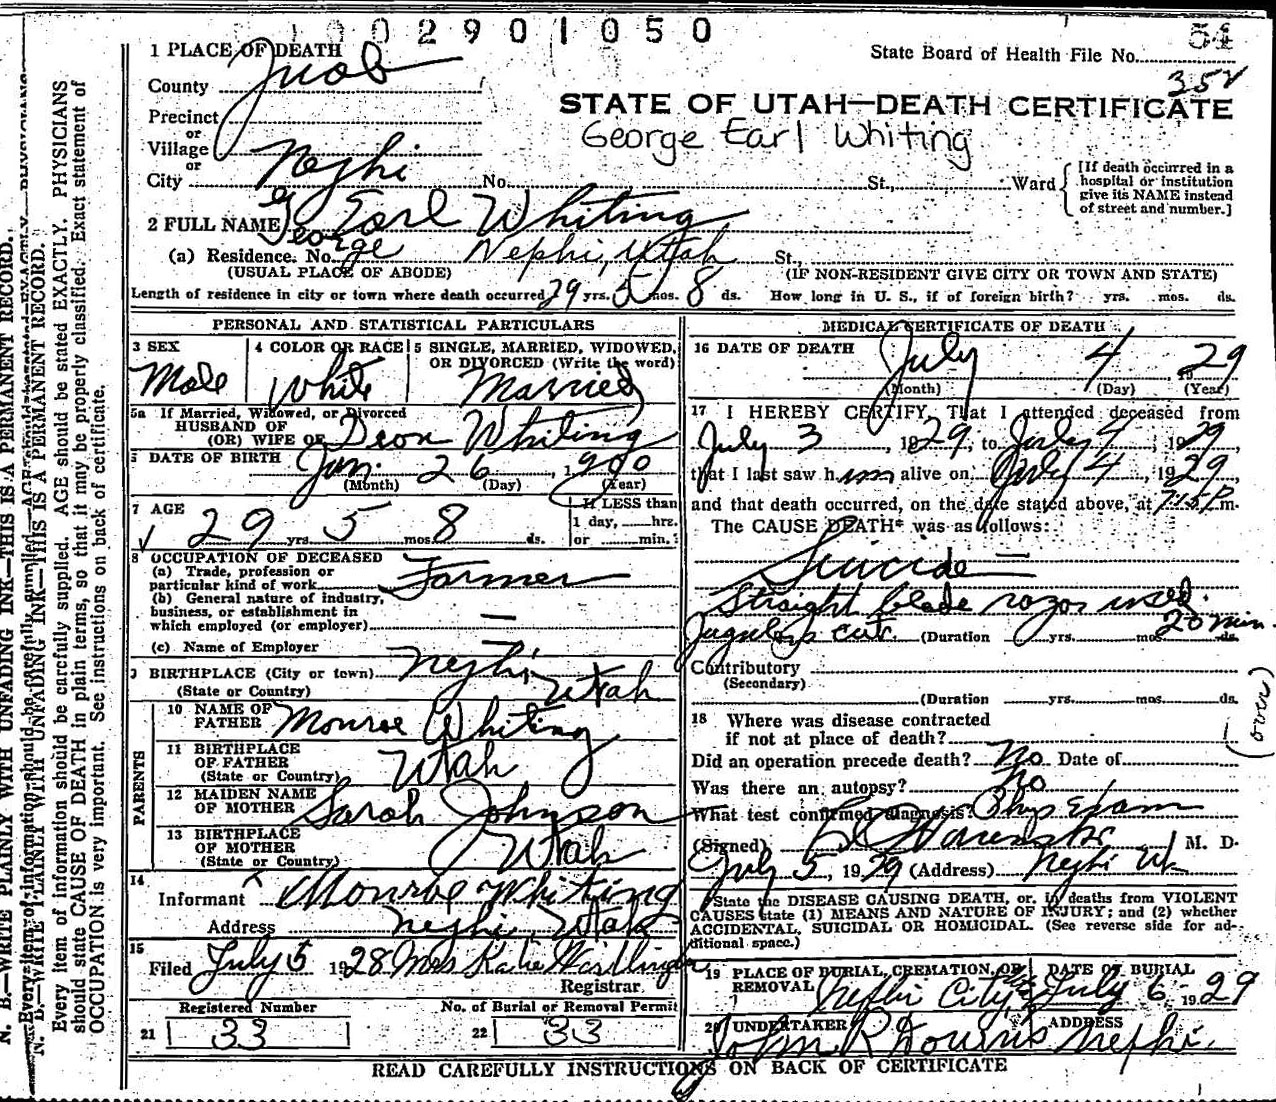 1 0 0 2 9 0 1 0 5 0
54
State Board of Health File No.
352
1 PLACE OF DEATH
County Juab
STATE OF UTAH—DEATH CERTIFICATE
George Earl Whiting
Precinct
or
Village
or
City Nephi No. St., Ward
[If death occurred in a hospital or institution give its NAME instead of street and number.]
2 FULL NAME G. Earl Whiting
George
(a) Residence. No. Nephi, Utah St.,
(USUAL PLACE OF ABODE) (IF NON-RESIDENT GIVE CITY OR TOWN AND STATE)
Length of residence in city or town where death occurred 29 yrs. 5 mos. 8 ds. How long in U. S., if of foreign birth? yrs. mos. ds.
PERSONAL AND STATISTICAL PARTICULARS
3 SEX
Male
4 COLOR OR RACE
White
5 SINGLE, MARRIED, WIDOWED, OR DIVORCED (Write the word)
Married
5a If Married, Widowed, or Divorced
HUSBAND OF
(OR) WIFE OF Deon Whiting
6 DATE OF BIRTH Jan. 26, 1900
(Month) (Day) (Year)
7 AGE
29 yrs 5 mos. 8 ds.
If LESS than
1 day, hrs.
or min.
8 OCCUPATION OF DECEASED
(a) Trade, profession or
particular kind of work Farmer
(b) General nature of industry,
business, or establishment in
which employed (or employer) —
(c) Name of Employer —
9 BIRTHPLACE (City or town) Nephi,
(State or Country) Utah
PARENTS
10 NAME OF
FATHER Monroe Whiting
11 BIRTHPLACE
OF FATHER
(State or Country) Utah
12 MAIDEN NAME
OF MOTHER Sarah Johnson
13 BIRTHPLACE
OF MOTHER
(State or Country) Utah
14
Informant Monroe Whiting
Address Nephi, Utah
15
Filed July 5 1928 Mrs Katie
Registrar.
Registered Number No. of Burial or Removal Permit
21 33 22 33
MEDICAL CERTIFICATE OF DEATH
16 DATE OF DEATH July 4 1929
(Month) (Day) (Year)
17 I HEREBY CERTIFY, That I attended deceased from
July 3, 1929, to July 4, 1929
that I last saw him alive on July 4, 1929
and that death occurred, on the date stated above, at 7:15 P m.
The CAUSE DEATH* was as follows:
Suicide —
Straight blade razor used.
Jugulars cut (Duration yrs. mos. ds. 20 min.
Contributory
(Secondary)
(Duration yrs. mos. ds.
18 Where was disease contracted
if not at place of death?
(over)
Did an operation precede death? No Date of
Was there an autopsy? No
What test confirmed diagnosis? Phys Exam
(Signed) M. D.
July 5, 1929 (Address) Nephi Ut
*State the DISEASE CAUSING DEATH, or, in deaths from VIOLENT
CAUSES state (1) MEANS AND NATURE OF INJURY; and (2) whether
ACCIDENTAL, SUICIDAL OR HOMICIDAL. (See reverse side for ad-
ditional space.)
19 PLACE OF BURIAL, CREMATION, OR REMOVAL
Nephi City,
DATE OF BURIAL
July 6 1929
20 UNDERTAKER
John R
ADDRESS
Nephi.
READ CAREFULLY INSTRUCTIONS ON BACK OF CERTIFICATE
N. B.—WRITE PLAINLY WITH UNFADING INK—THIS IS A PERMANENT RECORD.
Every item of information should be carefully supplied. AGE should be stated EXACTLY. PHYSICIANS
should state CAUSE OF DEATH in plain terms, so that it may be properly classified. Exact statement of
OCCUPATION is very important. See instructions on back of certificate.